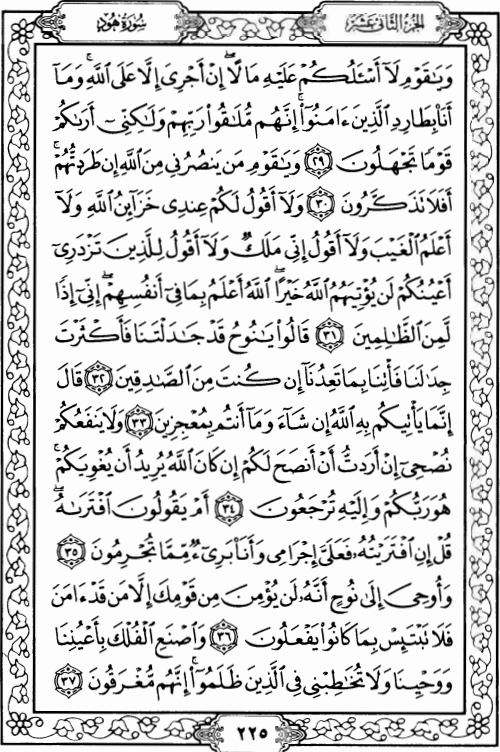 سُورَةُ هُودٍ
الجُزْءُ الثَّانِي عَشَرَ
وَيَٰقَوْمِ لَآ أَسْـَٔلُكُمْ عَلَيْهِ مَالًاۖ إِنْ أَجْرِىَ إِلَّا عَلَى ٱللَّهِۚ وَمَآ
أَنَا۠ بِطَارِدِ ٱلَّذِينَ ءَامَنُوٓا۟ۚ إِنَّهُم مُّلَٰقُوا۟ رَبِّهِمْ وَلَٰكِنِّىٓ أَرَىٰكُمْ
قَوْمًا تَجْهَلُونَ ٢٩ وَيَٰقَوْمِ مَن يَنصُرُنِى مِنَ ٱللَّهِ إِن طَرَدتُّهُمْۚ
أَفَلَا تَذَكَّرُونَ ٣٠ وَلَآ أَقُولُ لَكُمْ عِندِى خَزَآئِنُ ٱللَّهِ وَلَآ
أَعْلَمُ ٱلْغَيْبَ وَلَآ أَقُولُ إِنِّى مَلَكٌ وَلَآ أَقُولُ لِلَّذِينَ تَزْدَرِىٓ
أَعْيُنُكُمْ لَن يُؤْتِيَهُمُ ٱللَّهُ خَيْرًاۖ ٱللَّهُ أَعْلَمُ بِمَا فِىٓ أَنفُسِهِمْۖ إِنِّىٓ إِذًا
لَّمِنَ ٱلظَّٰلِمِينَ ٣١ قَالُوا۟ يَٰنُوحُ قَدْ جَٰدَلْتَنَا فَأَكْثَرْتَ
جِدَٰلَنَا فَأْتِنَا بِمَا تَعِدُنَآ إِن كُنتَ مِنَ ٱلصَّٰدِقِينَ ٣٢ قَالَ
إِنَّمَا يَأْتِيكُم بِهِ ٱللَّهُ إِن شَآءَ وَمَآ أَنتُم بِمُعْجِزِينَ ٣٣ وَلَا يَنفَعُكُمْ
نُصْحِىٓ إِنْ أَرَدتُّ أَنْ أَنصَحَ لَكُمْ إِن كَانَ ٱللَّهُ يُرِيدُ أَن يُغْوِيَكُمْۚ
هُوَ رَبُّكُمْ وَإِلَيْهِ تُرْجَعُونَ ٣٤ أَمْ يَقُولُونَ ٱفْتَرَىٰهُۖ
قُلْ إِنِ ٱفْتَرَيْتُهُۥ فَعَلَىَّ إِجْرَامِى وَأَنَا۠ بَرِىٓءٌ مِّمَّا تُجْرِمُونَ ٣٥
وَأُوحِىَ إِلَىٰ نُوحٍ أَنَّهُۥ لَن يُؤْمِنَ مِن قَوْمِكَ إِلَّا مَن قَدْ ءَامَنَ
فَلَا تَبْتَئِسْ بِمَا كَانُوا۟ يَفْعَلُونَ ٣٦ وَٱصْنَعِ ٱلْفُلْكَ بِأَعْيُنِنَا
وَوَحْيِنَا وَلَا تُخَٰطِبْنِى فِى ٱلَّذِينَ ظَلَمُوٓا۟ۚ إِنَّهُم مُّغْرَقُونَ ٣٧
٢٢٥